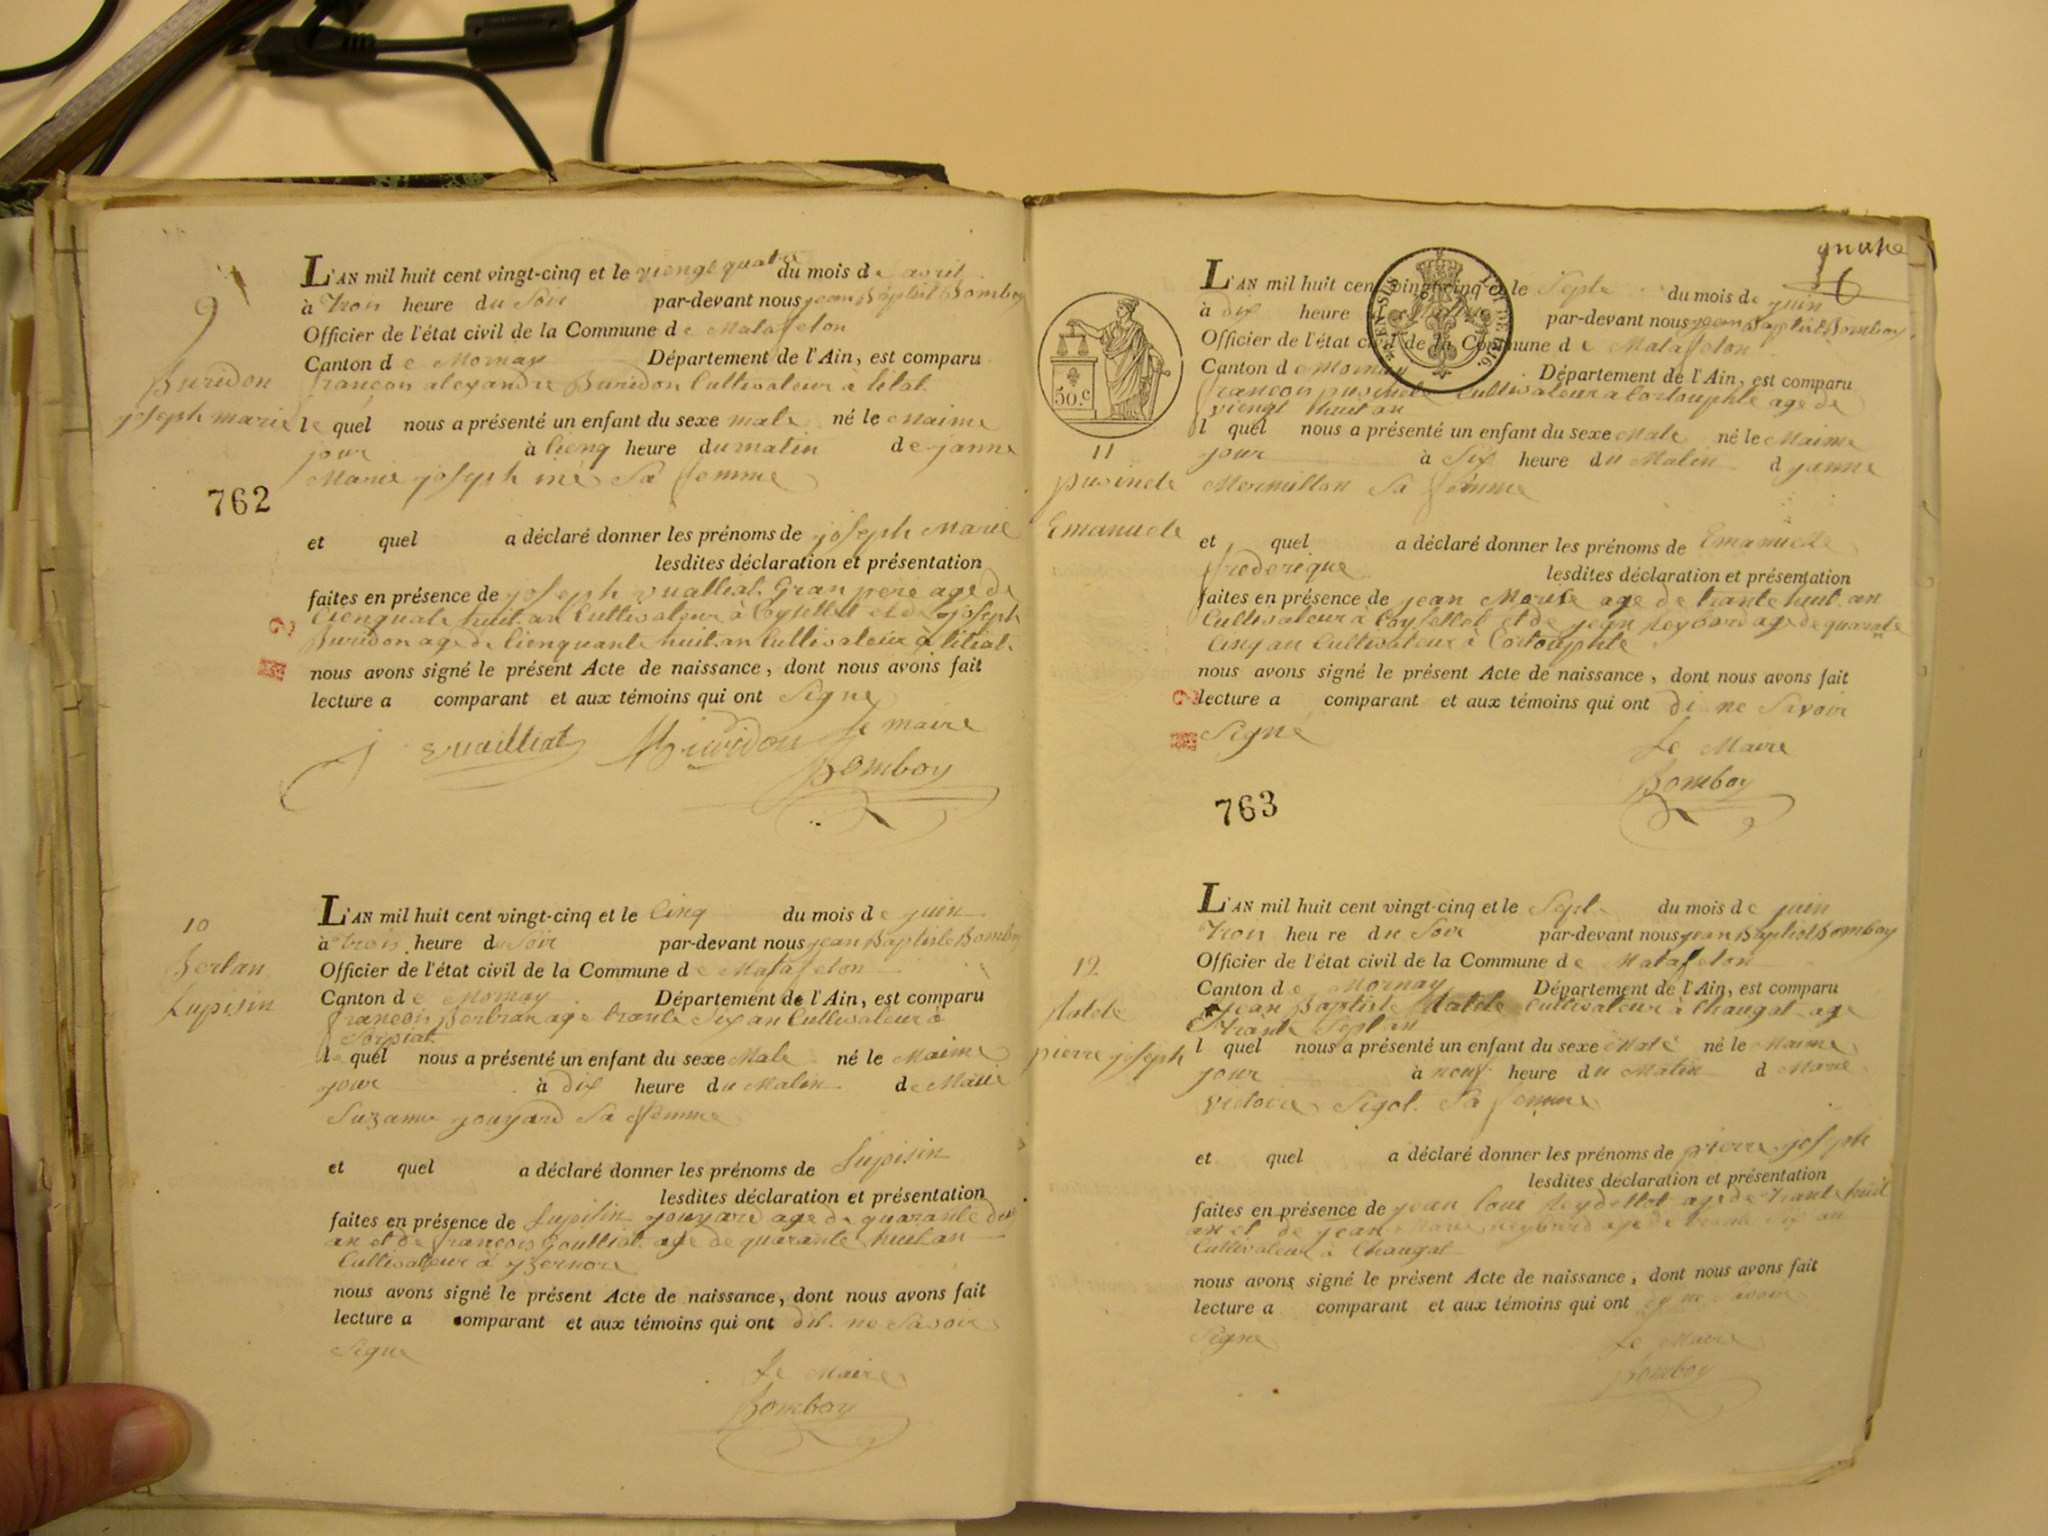 9
Buridon
joseph marie
L'AN mil huit cent vingt-cinq et le viengt quatre du mois de avril
à trois heure du Soir par-devant nous jean Baptist Bomboy
Officier de l'état civil de la Commune de Matafelon
Canton de Mornay Département de l'Ain, est comparu
françois alexandre Buridon Cultivateur à
le quel nous a présenté un enfant du sexe male né le Maime
jour à Cienq heure du matin de janne
Marie joseph sa femme
762
et quel a déclaré donner les prénoms de joseph Marie
lesdites déclaration et présentation
faites en présence de joseph vualliat Gran pere age de
Cienquate huit an Cultivateur à et de joseph
Buridon age de Cienquante huit an Cultivateur à
nous avons signé le présent Acte de naissance, dont nous avons fait
lecture a comparant et aux témoins qui ont Signe
J vuailliat Buridon le maire
Bomboy
10
Berlan
Lupisin
L'AN mil huit cent vingt-cinq et le Cinq du mois de juin
à trois heure du Soir par-devant nous jean Baptiste Bomboy
Officier de l'état civil de la Commune de Matafelon
Canton de Mornay Département de l'Ain, est comparu
francois age trante Six an Cultivateur à
le quel nous a présenté un enfant du sexe Male né le Maime
jour à dix heure du Malin de Marie
Suzanne jouyard Sa femme
et quel a déclaré donner les prénoms de Lupisin
lesdites déclaration et présentation
faites en présence de Lupisin jouyard age de quarante deux
an et de francois Goulliat age de quarante huit an
Cultivateur à yzernore
nous avons signé le présent Acte de naissance, dont nous avons fait
lecture a comparant et aux témoins qui ont dit ne Savoir
Signe
Le Maire
Bomboy
6
50.c
11
pusinele
Emanuele
L'AN mil huit cent vingt-cinq et le Sept du mois de juin
à dix heure par-devant nous jean Baptist Bomboy
Officier de l'état civil de la Commune de Matafelon
Canton de Mornay Département de l'Ain, est comparu
francois pusinele Cultivateur a Cortouphle age de
viengt huit an
l quel nous a présenté un enfant du sexe Male né le Maime
jour à Six heure du Malin d janne
Mermillon Sa femme
et quel a déclaré donner les prénoms de Emanuele
frederique lesdites déclaration et présentation
faites en présence de jean Morise age de trante huit an
Cultivateur à Coyselet et de jean Reybard age de quarante
Cinq an Cultivateur à Cortouphle
nous avons signé le présent Acte de naissance, dont nous avons fait
lecture a comparant et aux témoins qui ont di ne Savoir
Signé
Le Maire
Bomboy
763
12
pierre joseph
L'AN mil huit cent vingt-cinq et le Sept du mois de juin
trois heu re du Soir par-devant nous jean Baptist Bomboy
Officier de l'état civil de la Commune de Matafelon
Canton de Mornay Département de l'Ain, est comparu
jean Baptiste Cultivateur à Chaugat age
trante Sept an
l quel nous a présenté un enfant du sexe Male né le Maime
jour à neuf heure du Matin d Marie
victoire Sigol Sa femme
et quel a déclaré donner les prénoms de pierre joseph
lesdites déclaration et présentation
faites en présence de jean loui Reydellet age de trante huit
an et de jean Marie Reybard age de trante Six an
Cultivateur à Chaugat
nous avons signé le présent Acte de naissance, dont nous avons fait
lecture a comparant et aux témoins qui ont
Signe
Le Maire
Bomboy